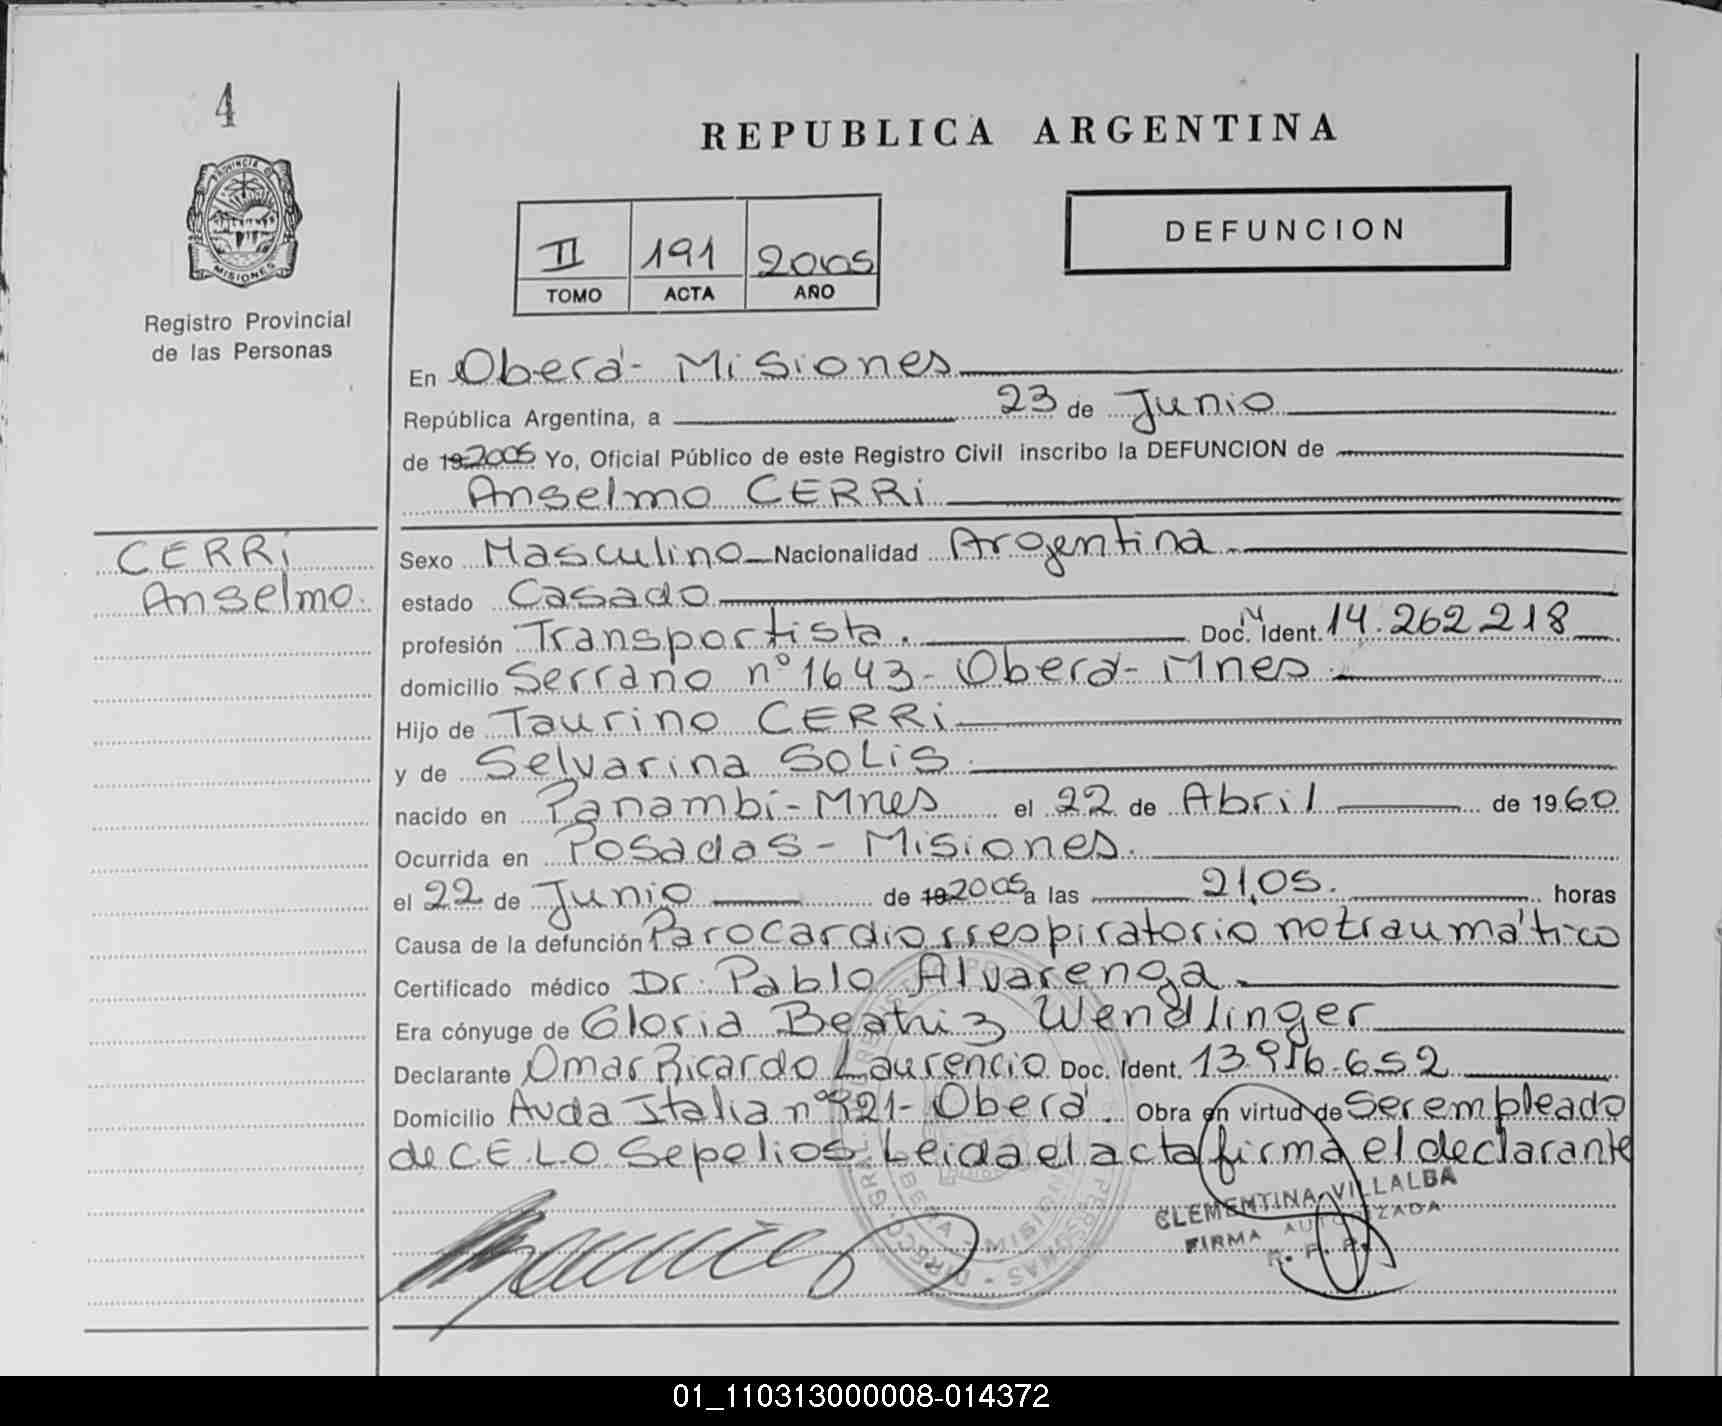 4
REPUBLICA ARGENTINA
PROVINCIA DE
MISIONES
Registro Provincial
de las Personas
II 191 2005
TOMO ACTA AÑO
DEFUNCION
En Oberá - Misiones
República Argentina, a 23 de Junio
de 19 2005 Yo, Oficial Público de este Registro Civil inscribo la DEFUNCION de
Anselmo CERRi
CERRi
Anselmo.
Sexo Masculino Nacionalidad Argentina
estado Casado
profesión Transportista. Doc. Ident. 14.262.218
domicilio Serrano nº 1643 - Oberá - Mnes
Hijo de Taurino CERRi
y de Selvarina SOLiS
nacido en Panambí - Mnes el 22 de Abril de 1960
Ocurrida en Posadas - Misiones.
el 22 de Junio de 19 2005 a las 21,05. horas
Causa de la defunción Parocardiorrespiratorio no traumático
Certificado médico Dr. Pablo Alvarenga
Era cónyuge de Gloria Beatriz Wendlinger
Declarante Omar Ricardo Laurencio Doc. Ident. 13.916.652
Domicilio Avda Italia nº 921 - Oberá. Obra en virtud de Ser empleado
de C.E.L.O Sepelios. Leida el acta firma el declarante
CLEMENTINA VILLALBA
FIRMA AUTORIZADA
R. P. P.
01_110313000008-014372